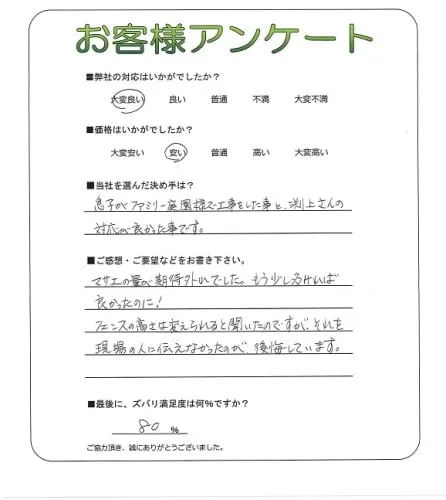 お客様アンケート
■弊社の対応はいかがでしたか?
大変良い 良い 普通 不満 大変不満
■価格はいかがでしたか?
大変安い 安い 普通 高い 大変高い
■当社を選んだ決め手は?
息子がファミリー庭園様で工事をした事と、渕上さんの
対応の良かった事です。
■ご感想・ご要望などをお書き下さい。
マサエの量が期待外れでした。もう少し多ければ
良かったのに!
フェンスの高さは変えられると聞いたのですが、それを
現場の人に伝えなかったのが、後悔しています。
■最後に、ズバリ満足度は何%ですか?
80 %
ご協力頂き、誠にありがとうございました。